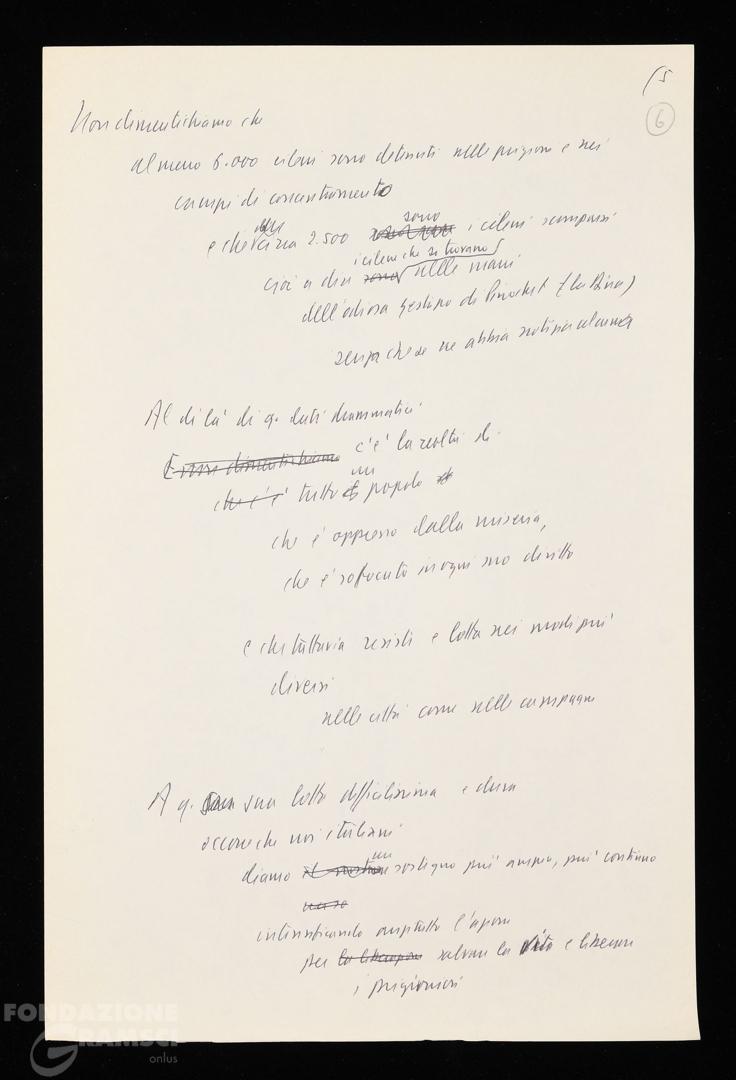 15
6
Non dimentichiamo che
almeno 6.000 cileni sono detenuti nelle prigioni e nei
campi di concentramento
e che circa 2.500 sono i cileni scomparsi
cioè a dire i cileni che si trovano nelle mani
dell'odiosa gestapo di Pinochet (la Dina)
senza che se ne abbia notizia alcuna
Al di là di q. dati drammatici
E non dimentichiamo c'è la realtà di
che c'è tutto un popolo
che è oppresso dalla miseria,
che è soffocato in ogni suo diritto
e che tuttavia resiste e lotta nei modi più
diversi
nelle città come nelle campagne
A q. sua lotta difficilissima e dura
occorre che noi italiani
diamo il nostro un sostegno più ampio, più continuo
intensificando anzitutto l'azione
per la liberazione salvare la vita e liberare
i prigionieri
FONDAZIONE
GRAMSCI
onlus